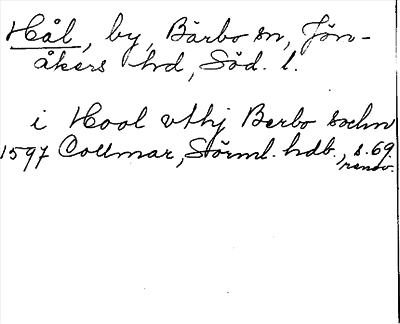 Hål, by, Bärbo sn, Jön-
åkers hd, Söd. l.
i Hool vthj Berbo sochn
1597 Collmar, Störml. hdb., s. 69.
renov.